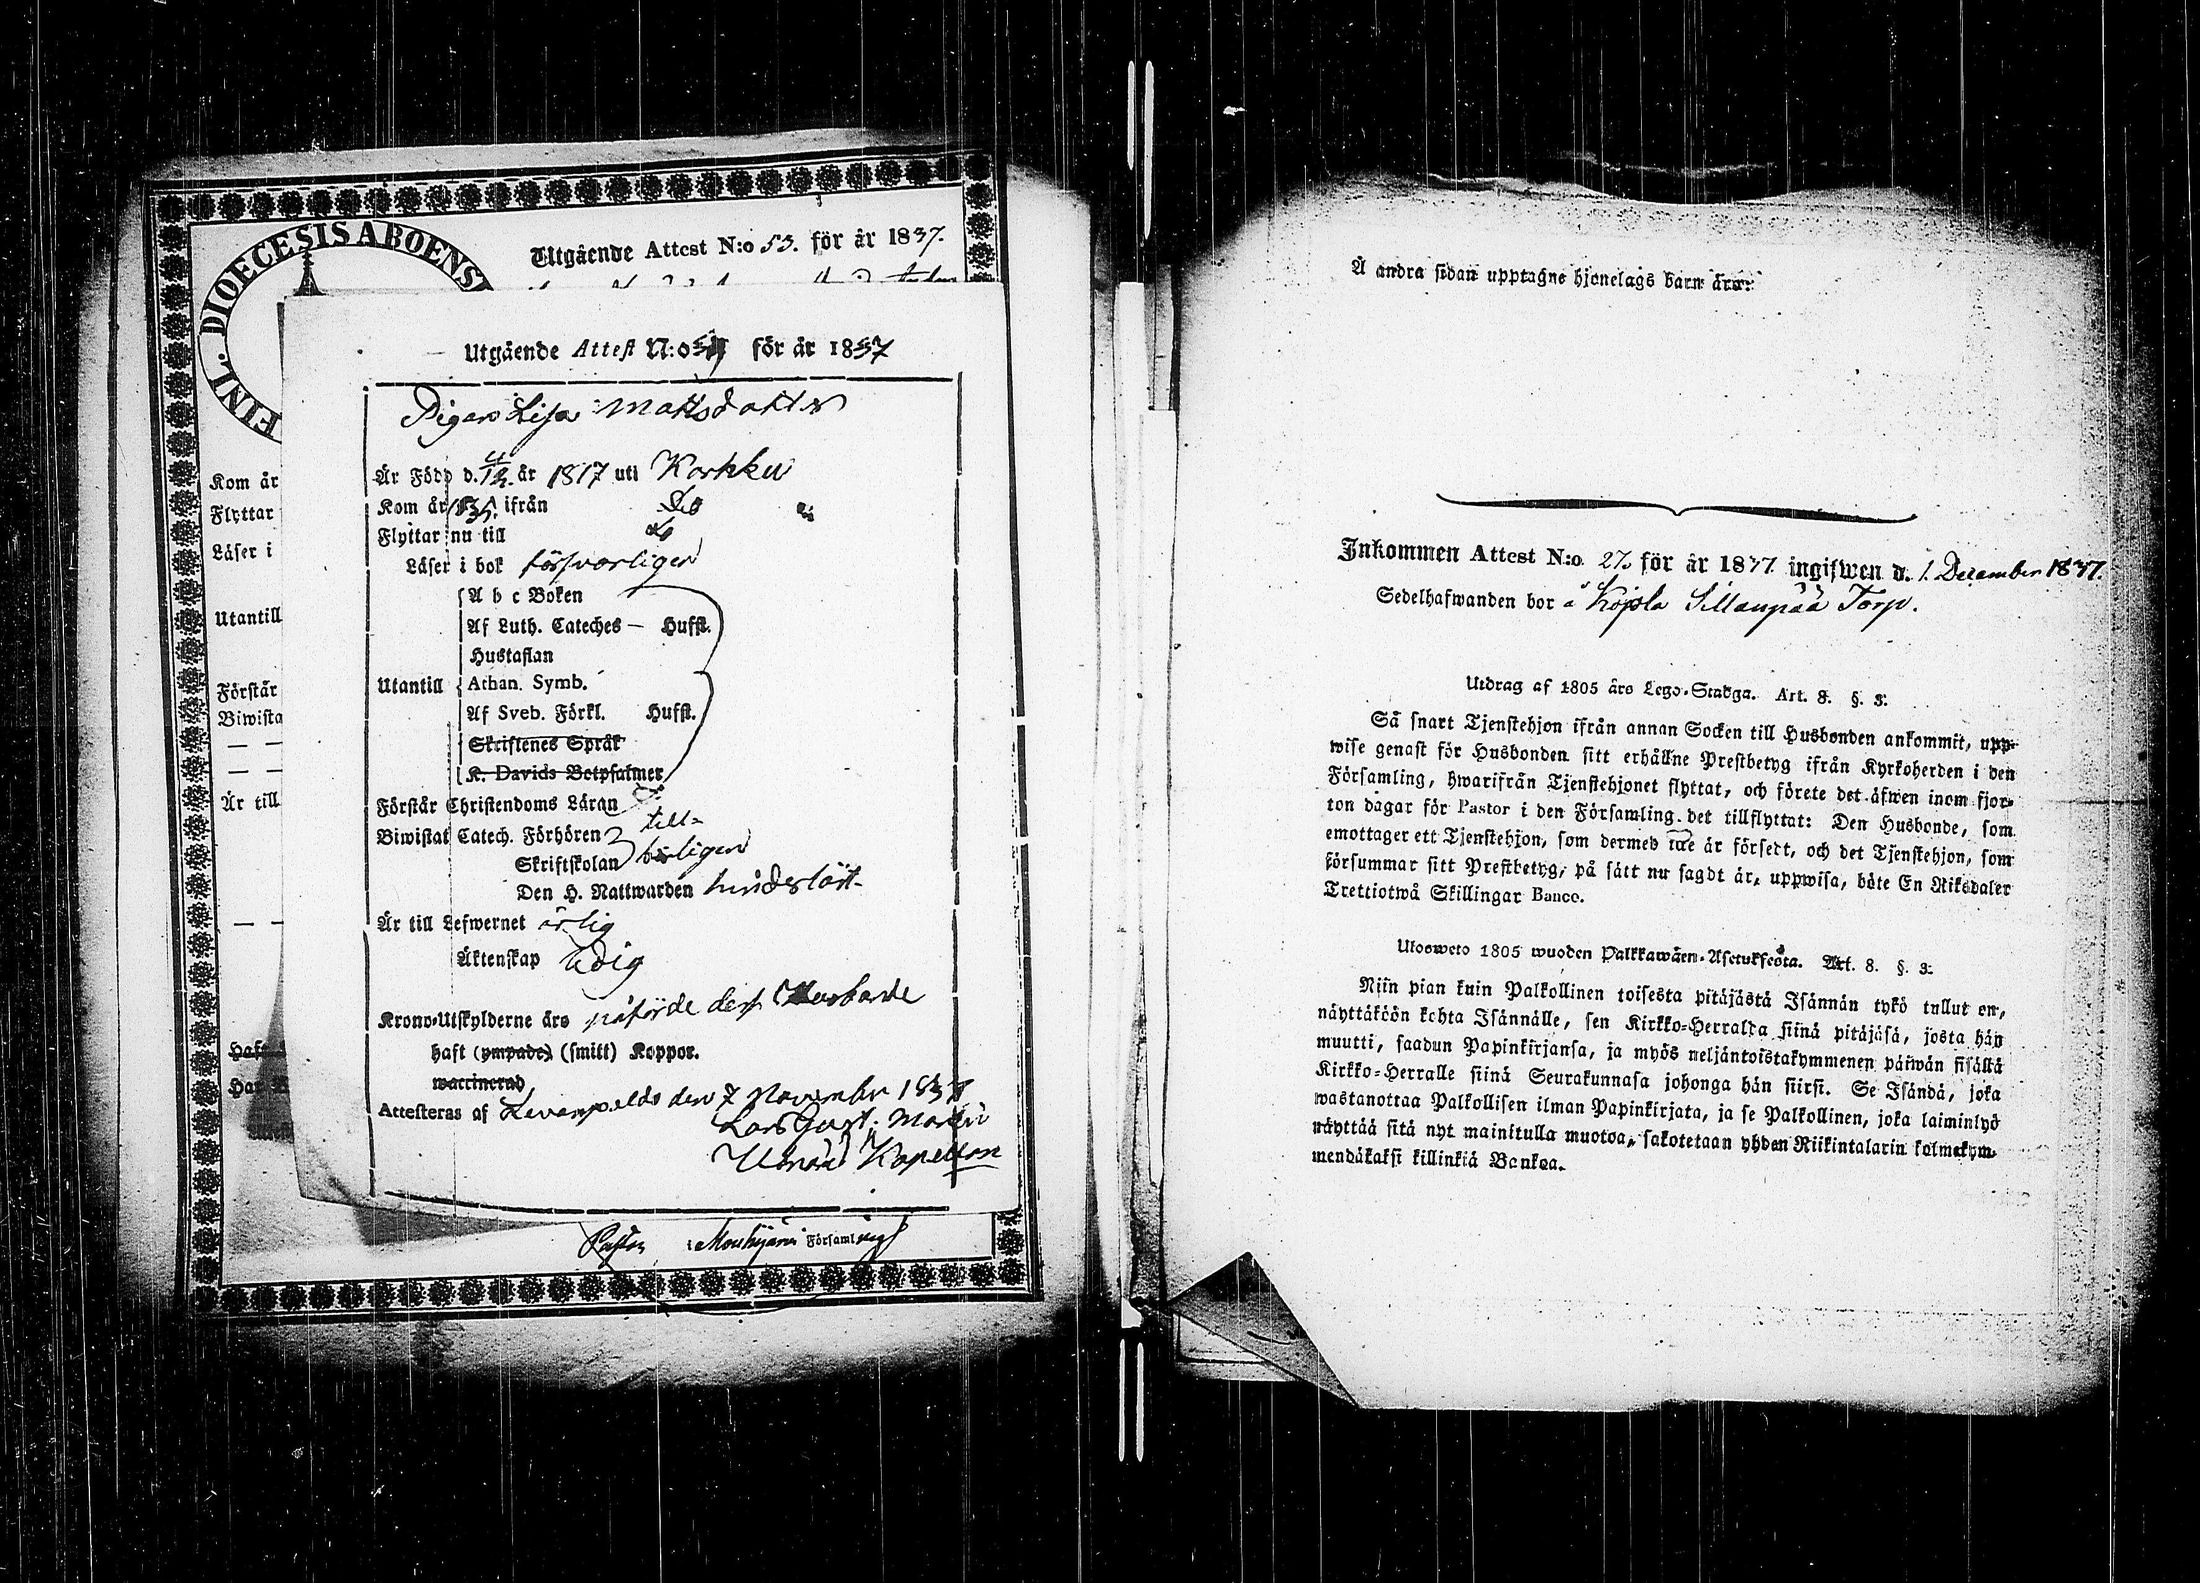 FINL. DIOECESIS ABOENS
Utgående Attest N:o 53. för år 1837.
Kom år
Flyttar
Läser i
Utantill
Förstår
Biwista
Är till
Utgående Attest N:o för år 1837
Pigan Lisa Mattsdotter
Är Född d. år 1817 uti Karkku
Kom år ifrån Do
Flyttar nu till Do
Läser i bok försvarligen
A b c Boken
Af Luth. Cateches — Hufst.
Hustaflan
Utantill Athan. Symb.
Af Sveb. Förkl. Hufst.
Skriftenes Språk
K. Davids Botpsalmer
Förstår Christendoms Läran
Biwistat Catech. Förhören till-
Skriftskolan börligen
Den H. Nattwarden hinderlöst
Är till Lefwernet ärlig
Äktenskap ledig
Krono-Utskylderne äro påförde dess Husbonde
haft (ympade) (smitt) Koppor.
waccinerad
Attesteras af den 7 November 1837
Lars Gust.
Kapellan
Pastor i Mouhijärvi Församling
Å andra sidan upptagne hjonelags barn äro:
Inkommen Attest N:o 27. för år 1837. ingifwen d. 1. December 1837.
Sedelhafwanden bor å Kojola Sillanpää Torp.
Utdrag af 1805 års Lego-Stadga. Art. 8. §. 3.
Så snart Tjenstehjon ifrån annan Socken till Husbonden ankommit, upp-
wise genast för Husbonden sitt erhållne Prestbetyg ifrån Kyrkoherden i den
Församling, hwarifrån Tjenstehjonet flyttat, och förete det äfwen inom fjor-
ton dagar för Pastor i den Församling det tillflyttat: Den Husbonde, som
emottager ett Tjenstehjon, som dermed icke är försedt, och det Tjenstehjon, som
försummar sitt Prestbetyg, på sätt nu sagdt är, uppwisa, böte En Riksdaler
Trettiotwå Skillingar Banco.
Ulosweto 1805 wuoden Palkkawäen-Asetuksesta. Art. 8. §. 3.
Niin pian kuin Palkollinen toisesta pitäjästä Isännän tykö tullut on,
näyttäköön kohta Isännälle, sen Kirkko-Herralda siinä pitäjäsä, josta hän
muutti, saadun Papinkirjansa, ja myös neljäntoistakymmenen päiwän sisällä
Kirkko-Herralle siinä Seurakunnasa johonga hän siirsi. Se Isändä, joka
wastanottaa Palkollisen ilman Papinkirjata, ja se Palkollinen, joka laiminlyö
näyttää sitä nyt mainitulla muotoa, sakotetaan yhden Riikintalarin kolmekym-
mendäkaksi killinkiä Bankoa.